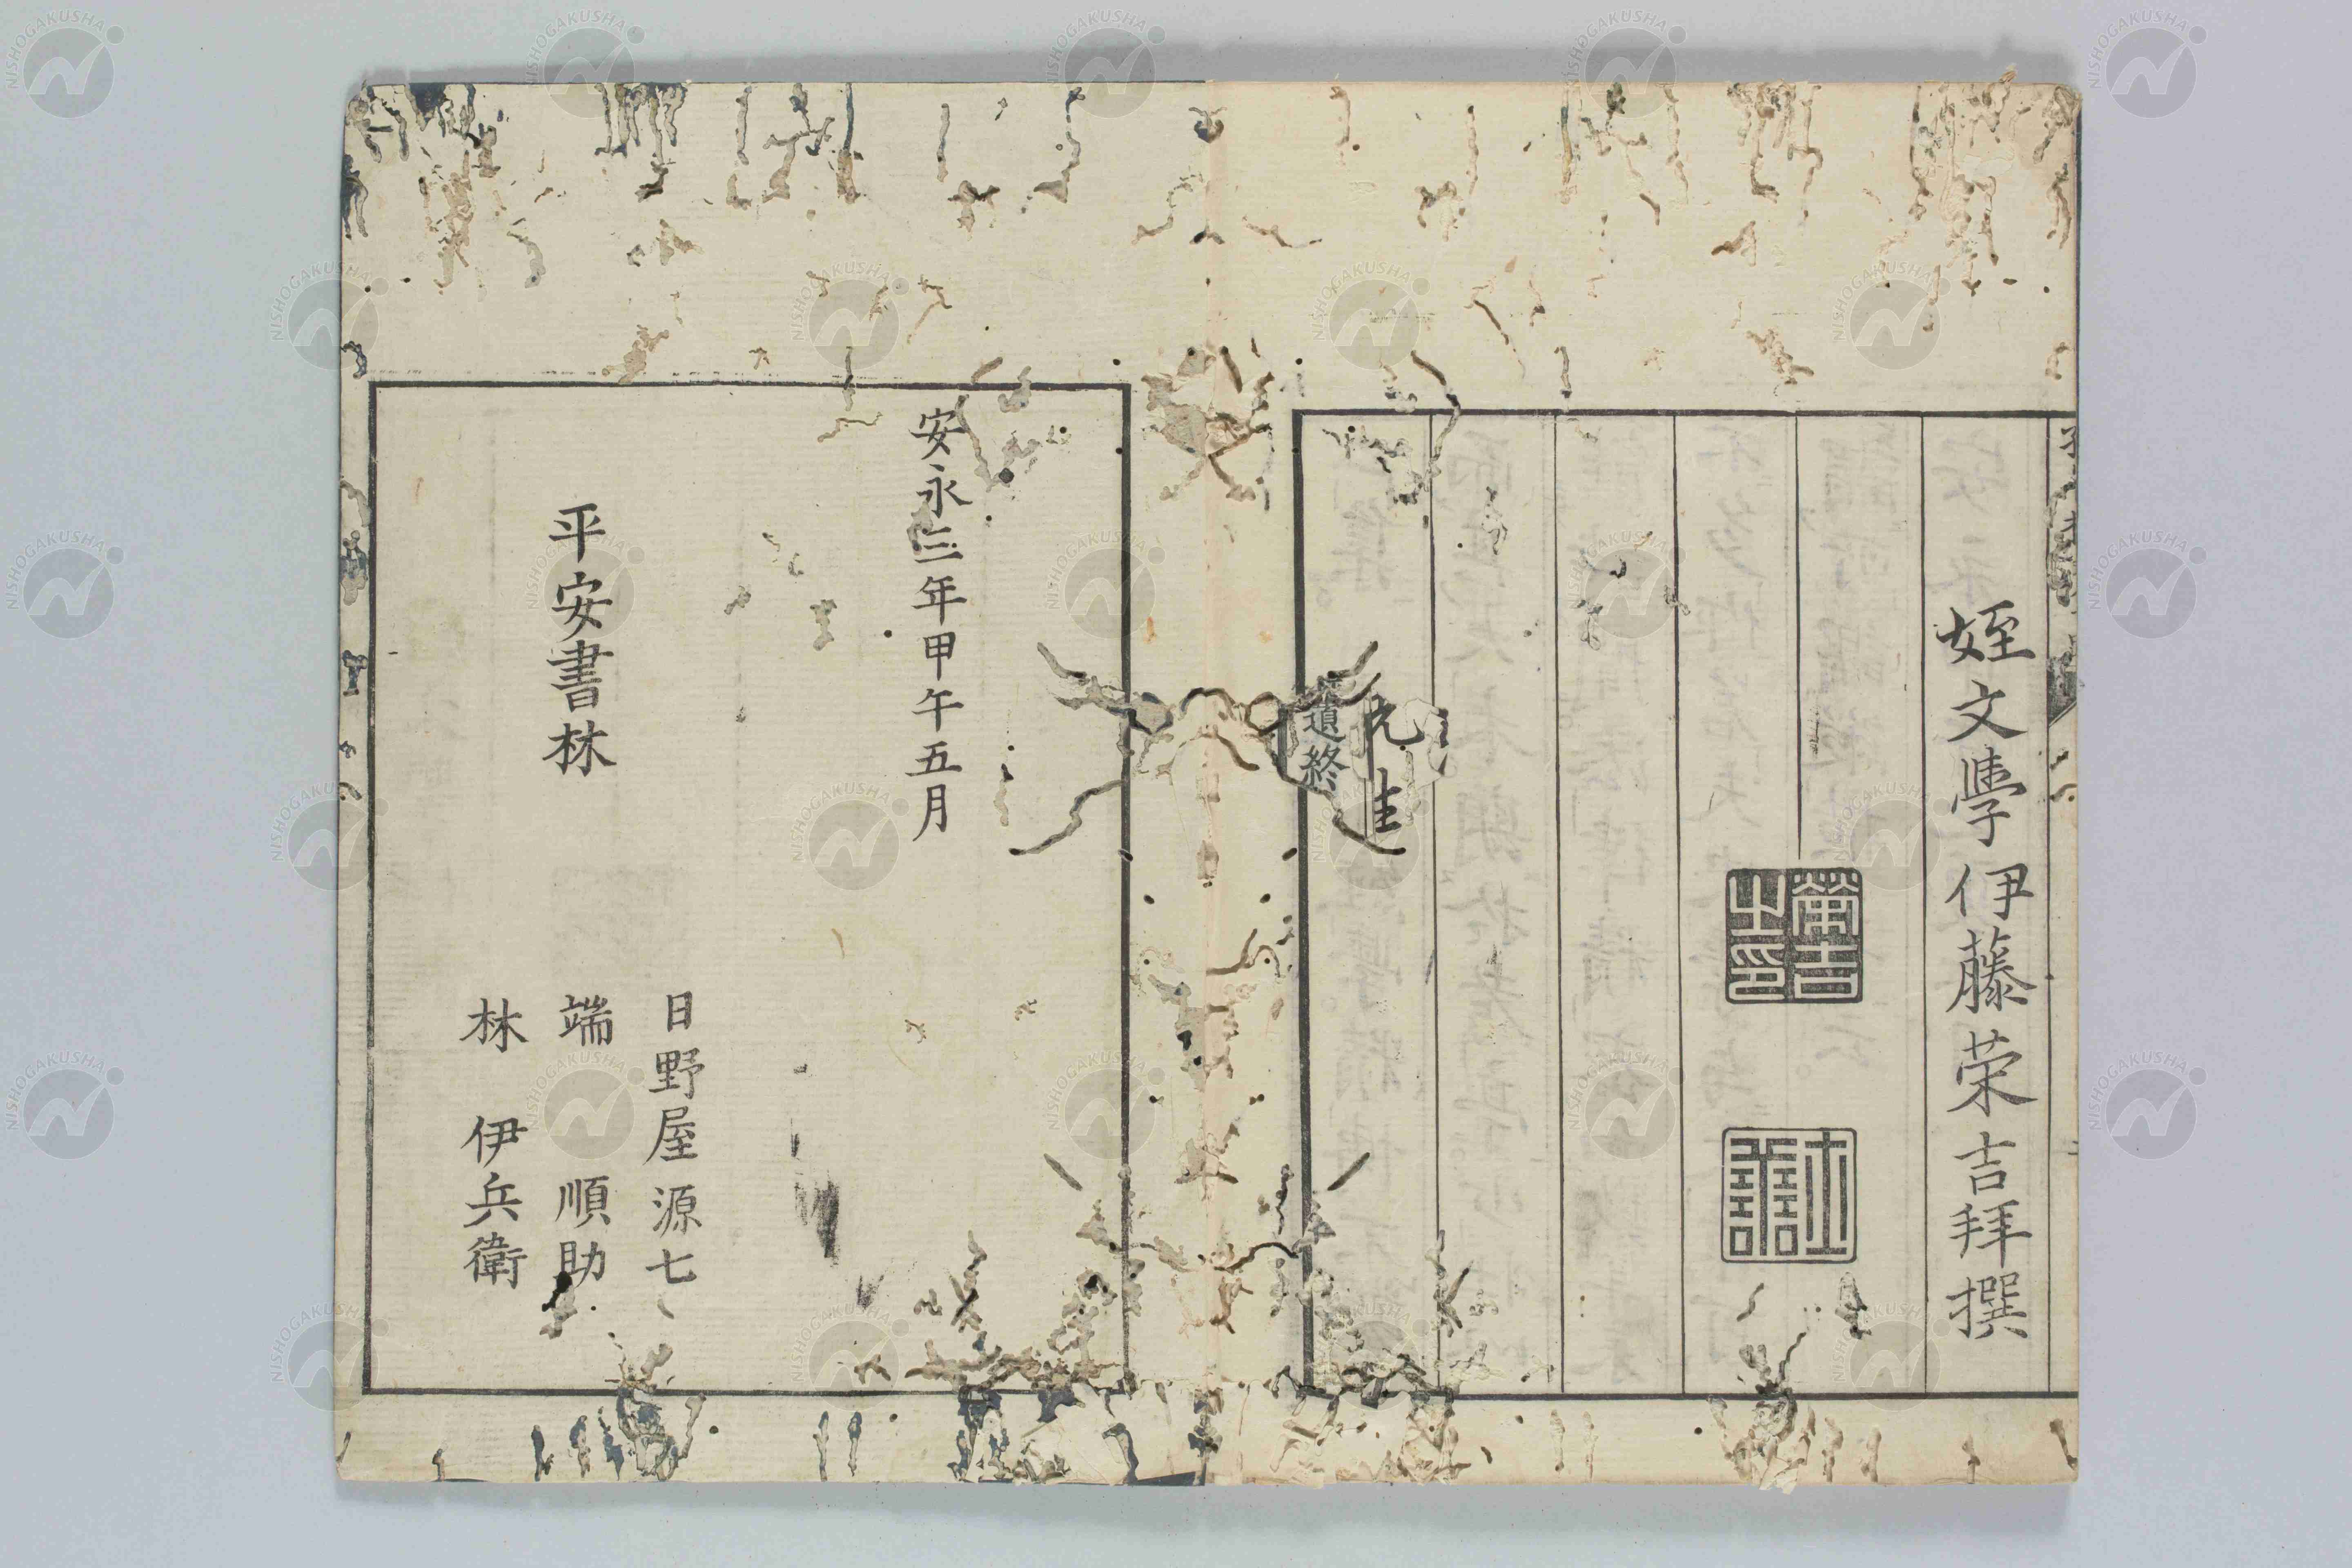 姪文學伊藤荣吉拜撰
榮吉之印
先生
遺終
安永三年甲午五月
平安書林
日野屋源七
端 順助
林 伊兵衛
NISHOGAKUSHA